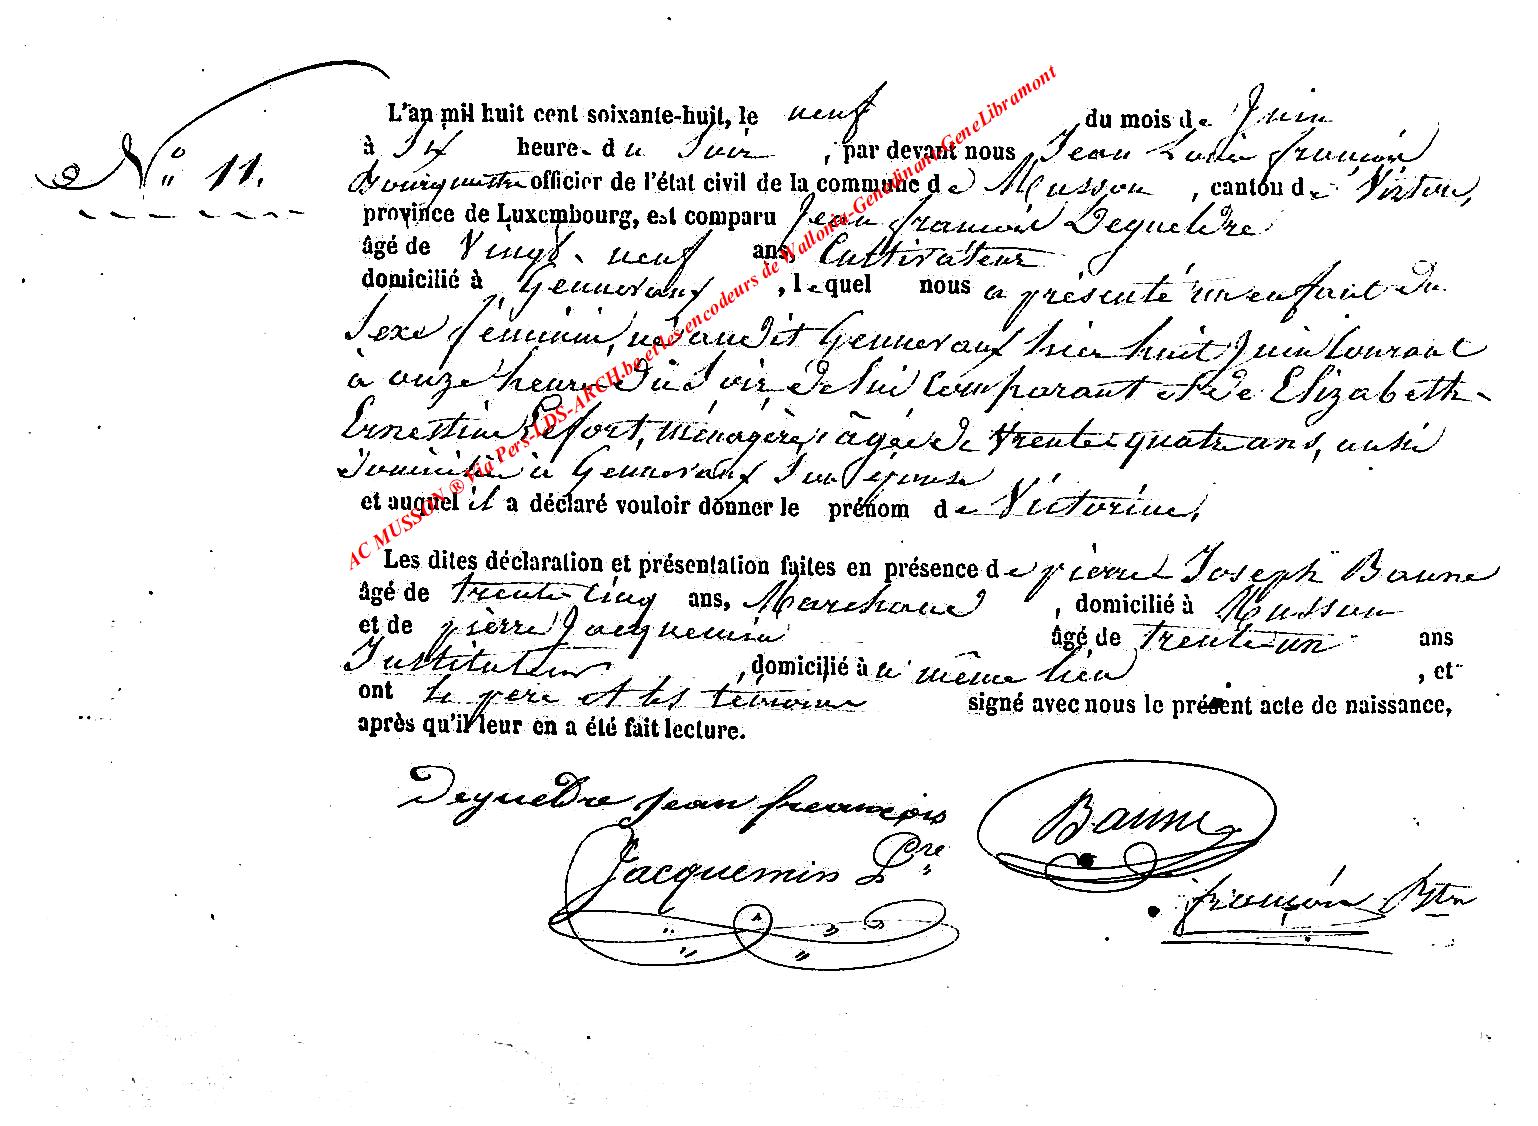 N° 11.
L'an mil huit cent soixante-huit, le neuf du mois de Juin
à Six heures du Soir, par devant nous Jean Louis françois
Bourgmestre officier de l'état civil de la commune de Musson, canton de Virton,
province de Luxembourg, est comparu Jean françois Dequeldre
âgé de Vingt-neuf ans, Cultivateur
domicilié à Gennevaux, lequel nous a présenté un enfant du
Sexe féminin, né audit Gennevaux hier huit Juin Courant
à onze heures du Soir, de lui Comparant et de Elizabeth-
Ernestine Lefort, ménagère, âgée de trente-quatre ans, aussi
domiciliée à Gennevaux Son épouse
et auquel il a déclaré vouloir donner le prénom de Victorine,
Les dites déclaration et présentation faites en présence de pierre Joseph Baune
âgé de trente cinq ans, Marchand, domicilié à Musson
et de pierre Jacquemin âgé de trente-un ans
Instituteur, domicilié à u même lieu, et
ont le père et les témoins signé avec nous le présent acte de naissance,
après qu'il leur en a été fait lecture.
Dequeldre jean francois
Baune
Jacquemin Pre
françois Btm
AC MUSSON ® Via Pers-LDS-ARCH.be et les encodeurs de Wallonia-Genedinant-GeneLibramont